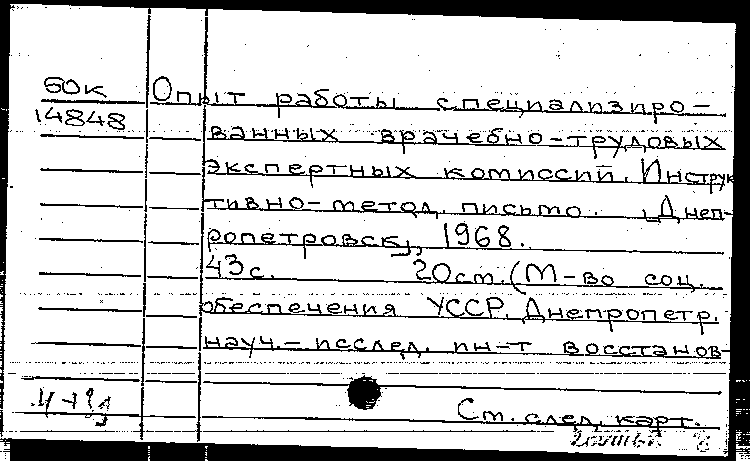 60к
14848
Опыт работы специализиро-
ванных врачебно-трудовых
экспертных комиссий. Инструк
тивно-метод. письмо. [Днеп-
ропетровск], 1968.
43с. 20см. (М-во соц.
обеспечения УССР. Днепропетр.
науч.-исслед. ин-т восстанов-
См. след. карт.